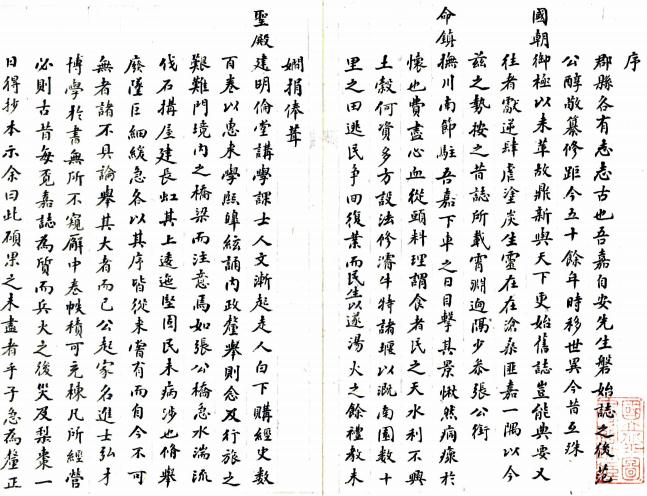 序
郡縣各有志志古也吾嘉自安先生磐始誌之後范
公醇敬纂修距今五十餘年時移世異今昔互殊
國朝御極以來革故鼎新與天下更始舊誌豈能典要又
往者獻逆肆虐塗炭生靈在在滄桑匪嘉一隅以今
茲之勢按之昔誌所載霄淵逈隅少參張公銜
命鎮撫川南節駐吾嘉下車之日目擊其景愀然痌瘝於
懷也費盡心血從頭料理謂食者民之天水利不興
土穀何資多方設法修濬牛特諸堰以溉南園數十
里之田逃民爭回復業而民生以遂湯火之餘禮教未
嫺捐俸葺
聖殿建明倫堂講學課士人文漸起走人白下購經史數
百卷以惠來學熙皥絃誦內政釐舉則念及行旅之
艱難門境內之橋梁而注意焉如張公橋急水湍流
伐石搆屋建長虹其上遠邇堅固民未病涉也脩舉
廢墜巨細緩急各以其序皆從未嘗有而自今不可
無者諸不具論舉其大者而已公起家名進士弘才
博學於書無所不窺廨中卷帙積可充棟凡所經營
必則古昔每覓嘉誌為質而兵火之後災及梨棗一
日得抄本示余曰此碩果之未盡者乎子急為釐正